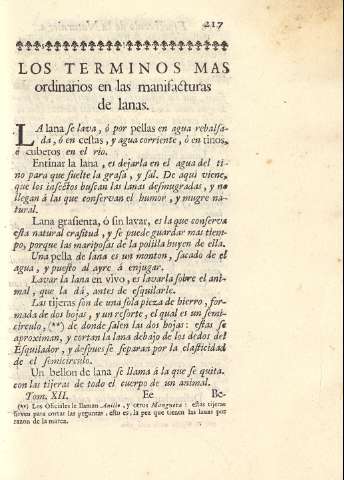 217
LOS TERMINOS MAS
ordinarios en las manifacturas
de lanas.
LA lana se lava, ó por pellas en agua rebalsa-
da, ó en cestas, y agua corriente, ó en tinos,
ó cuberos en el rio.
Entinar la lana, es dejarla en el agua del ti-
no para que suelte la grasa, y sal. De aqui viene,
que los insectos buscan las lanas desmugradas, y no
llegan á las que conservan el humor, y mugre na-
tural.
Lana grasienta, ó sin lavar, es la que conserva
esta natural crasitud, y se puede guardar mas tiem-
po, porque las mariposas de la polilla huyen de ella.
Una pella de lana es un monton, sacado de el
agua, y puesto al ayre á enjugar.
Lavar la lana en vivo, es lavarla sobre el ani-
mal, que la dá, antes de esquilarle.
Las tijeras son de una sola pieza de hierro, for-
mada de dos hojas, y un resorte, el qual es un semi-
circulo, (**) de donde salen las dos hojas: estas se
aproximan, y cortan la lana debajo de los dedos del
Esquilador, y despues se separan por la elasticidad
de el semicirculo.
Un bellon de lana se llama á la que se quita
con las tijeras de todo el cuerpo de un animal.
Tom. XII. Ee Be-
(**) Los Oficiales le llaman Anillo, y otros Mangueta: estas tijeras
sirven para cortar las pegantas; esto es, la pez que tienen las lanas por
razon de la marca.